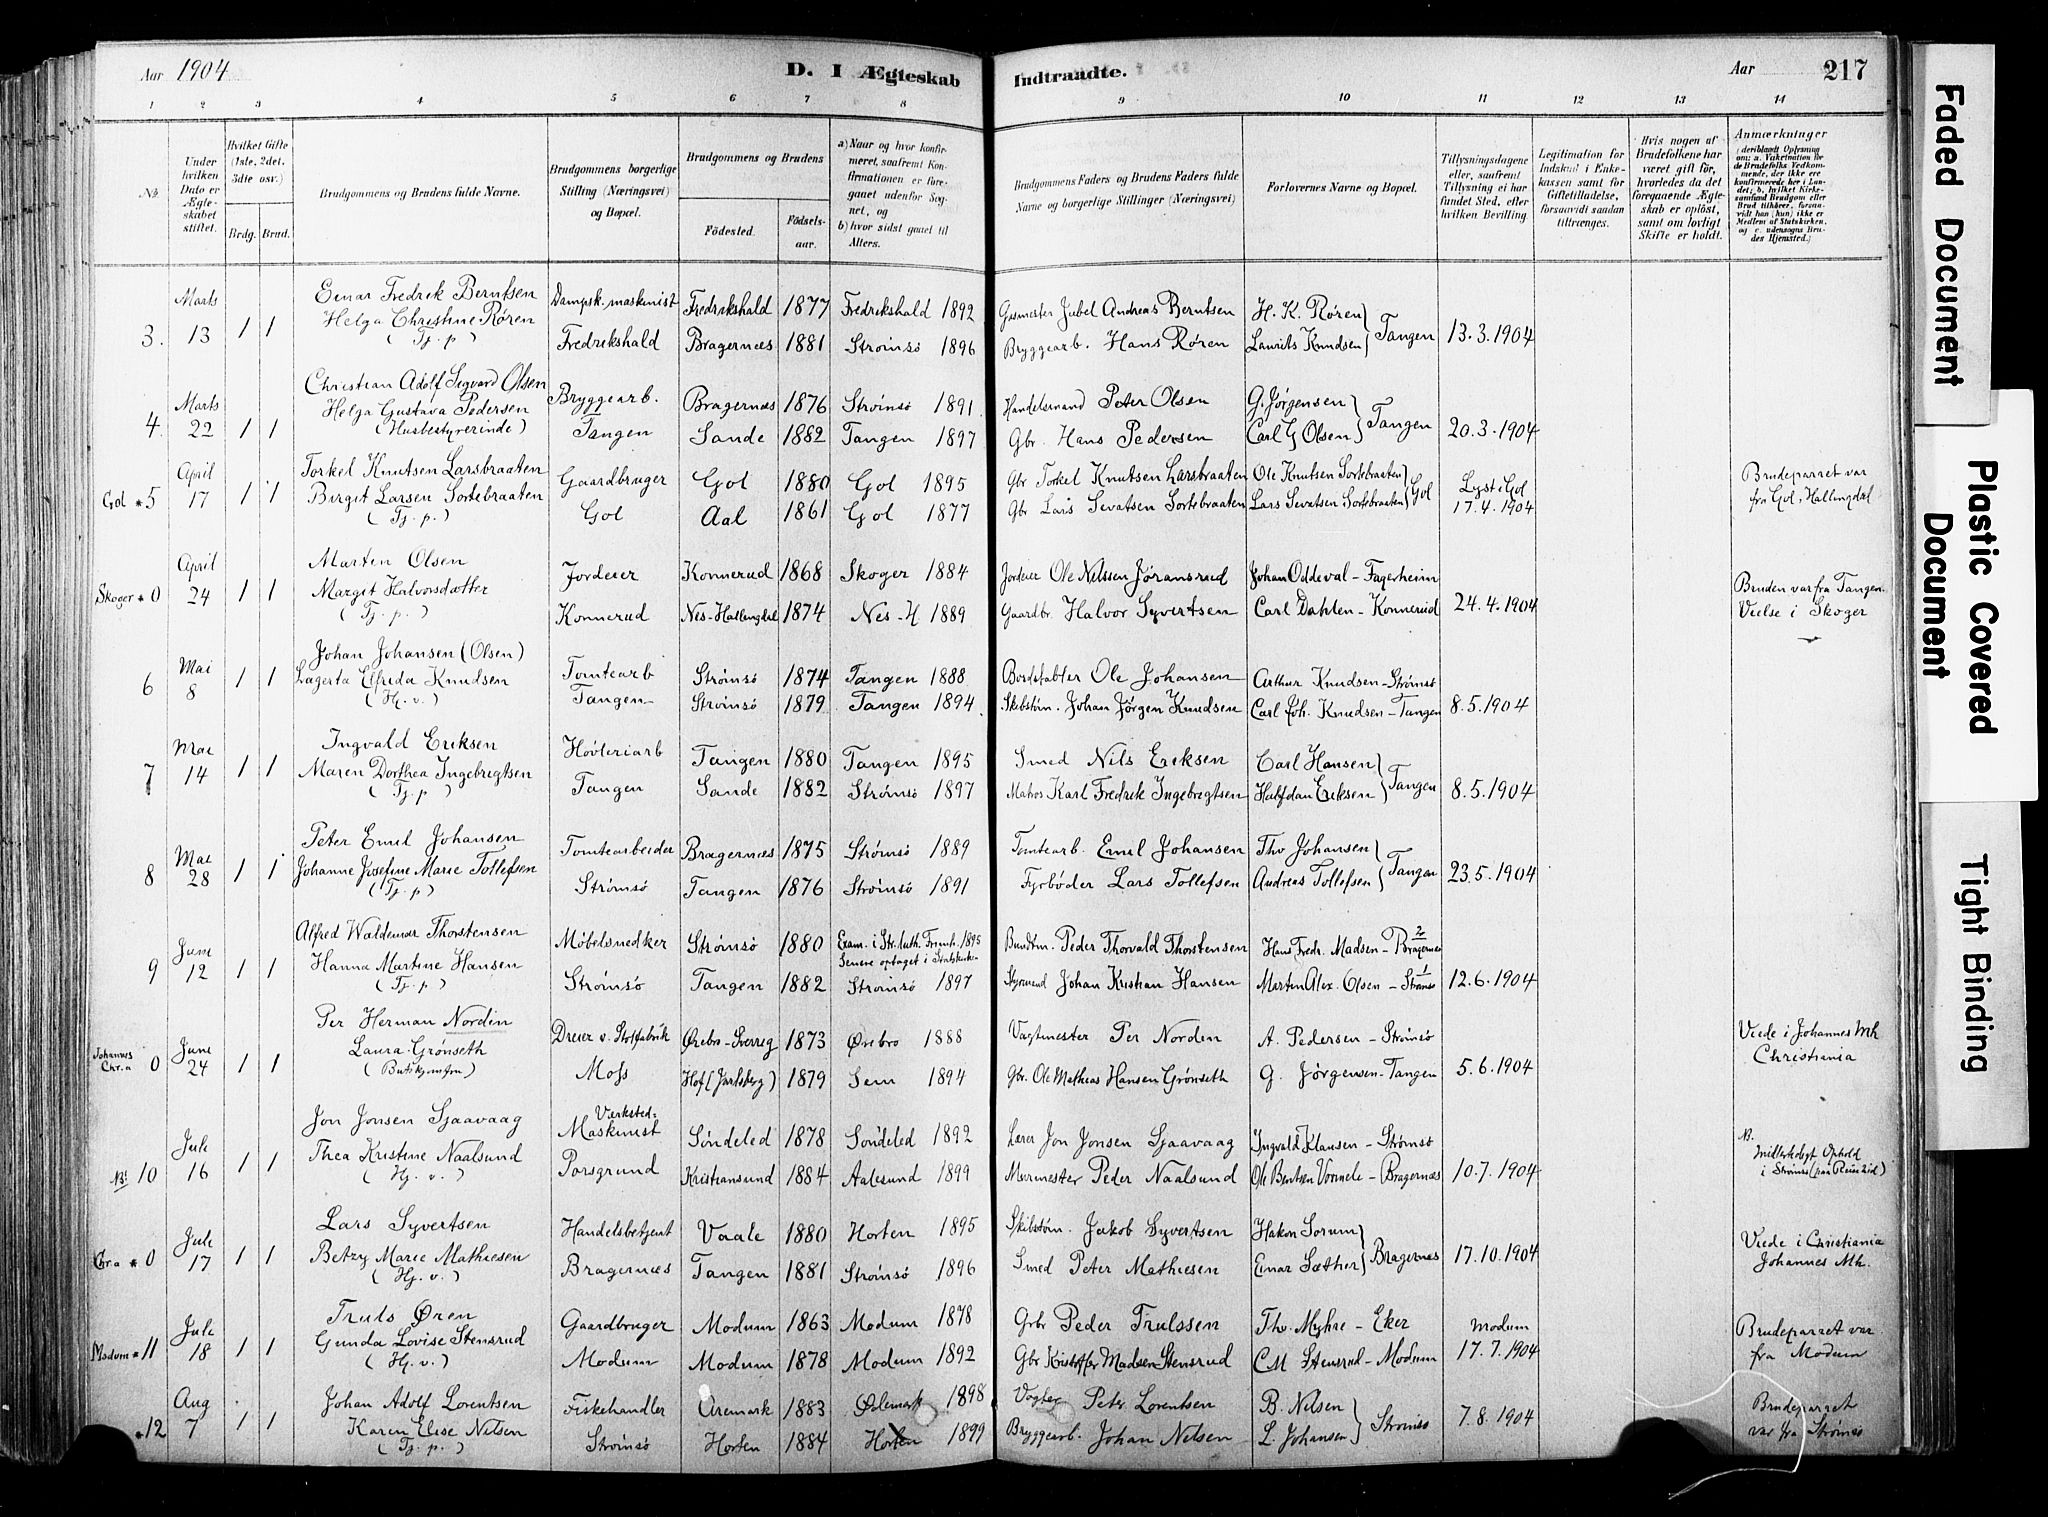 Aar 1904
D. I Ægteskab
Indtraadte.
Aar 217
1 2 3 4 5 6 7 8 9 10 11 12 13 14
No.
Under hvilken Dato er Ægteskabet stiftet.
Hvilket Gifte (1ste, 2det, 3die osv.)
Brdg. Brud.
Brudgommens og Brudens fulde Navne.
Brudgommens borgerlige Stilling (Næringsvei) og Bopæl.
Brudgommens og Brudens
Fødested.
Fødsels-aar.
a) Naar og hvor konfirmeret, saafremt Konfirmationen er foregaaet udenfor Sognet, og
b) hvor sidst gaaet til Alters.
Brudgommens Faders og Brudens Faders fulde Navne og borgerlige Stillinger (Næringsvei)
Forlovernes Navne og Bopæl.
Tillysningsdagene eller, saafremt Tillysning ei har fundet Sted, efter hvilken Bevilling
Legitimation for Indskud i Enkekassen samt for Giftetilladelse, forsaavidt saadan tiltrænges.
Hvis nogen af Brudefolkene har været gift før, hvorledes da det foregaaende Ægteskab er opløst, samt om lovligt Skifte er holdt.
Anmærkninger
(deriblandt Oplysning om: a. Vakcination for de Brudefolks Vedkommende, der ikke ere konfirmerede her i Landet; b. hvilket Kirkesamfund Brudgom eller Brud tilhører, forsaavidt han (hun) ikke er Medlem af Statskirken, og c. udensogns Brudes Hjemsted.)
3. Marts 13 1 1 Einar Fredrik Berntsen Dampsk. maskinist Fredrikshald 1877 Fredrikshald 1892 Gasmester Jubel Andreas Berntsen H. K. Røren
Helga Christine Røren (Tj. p) Fredrikshald Bragernæs 1881 Strømsø 1896 Bryggearb. Hans Røren Laurits Knudsen Tangen 13.3.1904
4. Marts 22 1 1 Christian Adolf Sigvard Olsen Bryggearb. Bragernæs 1876 Strømsø 1891 Handelsmand Peter Olsen G. Jørgensen
Helga Gustava Pedersen (Husbestyrerinde) Tangen Sande 1882 Tangen 1897 Gbr. Hans Pedersen Carl G Olsen Tangen 20.3.1904
Gol *5 April 17 1 1 Torkel Knutsen Larsbraaten Gaardbruger Gol 1880 Gol 1895 Gbr Torkel Knutsen Larsbraaten Ole Knutsen Sortebraaten Lyst i Gol Brudeparret var
Birgit Larsen Sortebraaten (Tj. p.) Gol Aal 1861 Gol 1877 Gbr Lars Sevatsen Sortebraaten Lars Sevatsen Sortebraaten Gol 17.4.1904 fra Gol, Hallingdal
Skoger *0 April 24 1 1 Marten Olsen Jordeier Konnerud 1868 Skoger 1884 Jordeier Ole Nilssen Jøransrud Johan Oddeval - Fagerheim Bruden var fra Tangen.
Margit Halvorsdatter (Tj. p.) Konnerud Nes-Hallingdal 1874 Nes-H 1889 Gaardbr. Halvor Syvertsen Carl Dahlen - Konnerud 24.4.1904 Vielse i Skoger
6 Mai 8 1 1 Johan Johansen (Olsen) Tomtearb Strømsø 1874 Tangen 1888 Ole Johansen Arthur Knudsen - Strømsø
Lagerta Elfrida Knudsen (Hj. v.) Tangen Strømsø 1879 Tangen 1894 Skibstøm. Johan Jørgen Knudsen Carl Joh. Knudsen - Tangen 8.5.1904
7 Mai 14 1 1 Ingvald Eriksen Høvleriarb Tangen 1880 Tangen 1895 Smed Nils Eriksen Carl Hansen
Maren Dorthea Ingebregtsen (Tj. p) Tangen Sande 1882 Strømsø 1897 Matros Karl Fredrik Ingebregtsen Halfdan Eriksen Tangen 8.5.1904
8 Mai 28 1 1 Peter Emil Johansen Tomtearbeider Bragernæs 1875 Strømsø 1889 Tomtearb. Emil Johansen Thv Johansen
Johanne Josefine Marie Tollefsen (Tj. p) Strømsø Tangen 1876 Strømsø 1891 Fyrbøder Lars Tollefsen Andreas Tollefsen Tangen 23.5.1904
9 Juni 12 1 1 Alfred Waldemar Thorstensen Møbelsnedker Strømsø 1880 Exam. i Str. luth. Frimh. 1895 Senere optaget i Statskirken Bundtm. Peder Thorvald Thorstensen Hans Fredr. Madsen - Bragernes
Hanna Martine Hansen (Tj. p) Strømsø Tangen 1882 Strømsø 1897 Styrmand Johan Kristian Hansen Martin Alex. Olsen - Strømsø 12.6.1904
Johannes Chr.a 0 Juni 24 1 1 Per Herman Nordin Dreier v. Stolfabrik Ørebro-Sverrig 1873 Ørebro 1888 Vagtmester Per Norden A. Pedersen - Strømsø Viede i Johannes Mh
Laura Grønseth (Butikjomfru) Moss Hof (Jarlsberg) 1879 Sem 1894 Gbr. Ole Mathias Hansen Grønseth G. Jørgensen - Tangen 5.6.1904 Christiania
NB! 10 Juli 16 1 1 Jon Jonsen Sjaavaag Værksted= Maskinist Søndeled 1878 Søndeled 1892 Lærer Jon Jonsen Sjaavaag Ingvald Klausen - Strømsø
Thea Kristine Naalsund (Hj. v.) Porsgrund Kristiansund 1884 Aalesund 1899 Murmester Peder Naalsund Ole Bentsen Vonnele - Bragernæs 10.7.1904 Midlertidigt Ophold i Strømsø
Chr.a *0 Juli 17 1 1 Lars Syvertsen Handelsbetjent Vaale 1880 Horten 1895 Skibstøm. Jakob Syvertsen Hakon Sorum Viede i Christiania
Betzy Marie Mathiesen (Hj. v.) Bragernæs Tangen 1881 Strømsø 1896 Smed Peter Mathiesen Einar Sæther Bragernæs 17.10.1904 Johannes Mh.
Modum *11 Juli 18 1 1 Truls Øren Gaardbruger Modum 1863 Modum 1878 Gbr Peder Trulssen Thv. Myhre - Eker Modum Brudeparret var
Gunda Lovise Stensrud (Hj. v.) Modum Modum 1878 Modum 1892 Gbr Kristoffer Madsen Stensrud CM Stensrud - Modum 17.7.1904 fra Modum
*12 Aug 7 1 1 Johan Adolf Lorentsen Fiskehandler Aremark 1883 Ødemark 1898 Vogter Peter Lorentsen B. Nilsen Brudeparret
Karen Elise Nilsen (Tj. p.) Strømsø Horten 1884 Horten 1899 Bryggearb. Johan Nilsen L. Johansen Strømsø 7.8.1904 var fra Strømsø
Faded Document
Plastic Covered Document
Tight Binding